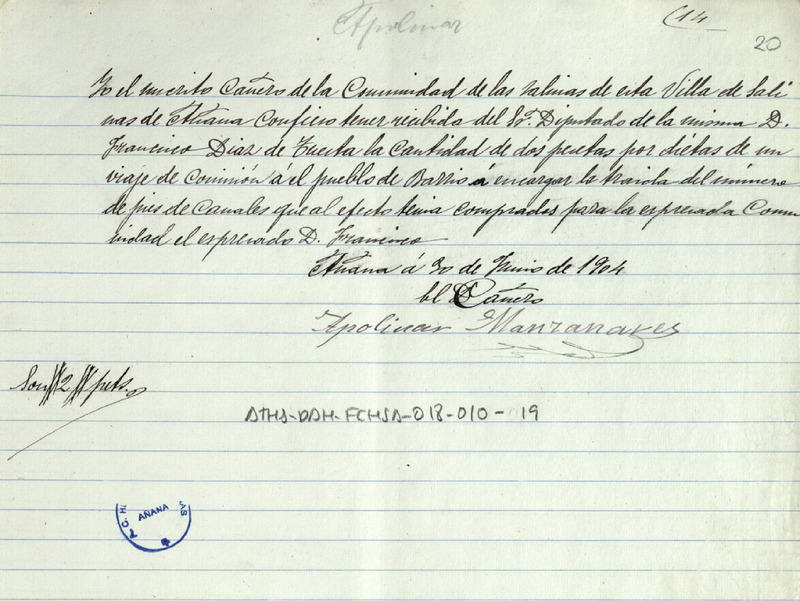 Apolinar
(14
20
Yo el inscrito Cañero de la Comunidad de las Salinas de esta Villa de Sali
nas de Añana Confieso tener recibida del Sr. Diputado de la misma D.
Francisco Diaz de Tuesta la Cantidad de dos pesetas por dietas de un
viaje de Comisión á el pueblo de Barrio á encargar la traida del número
de pies de Canales que al efecto tenia comprados para la espresada Comu
nidad el espresado D. Francisco
Añana á 30 de Junio de 1904
El Cañero
Apolinar Manzanares
Son 2 pets.
ATHA-DAH-FCHSA-018-010-19
C. H. AÑANA AS